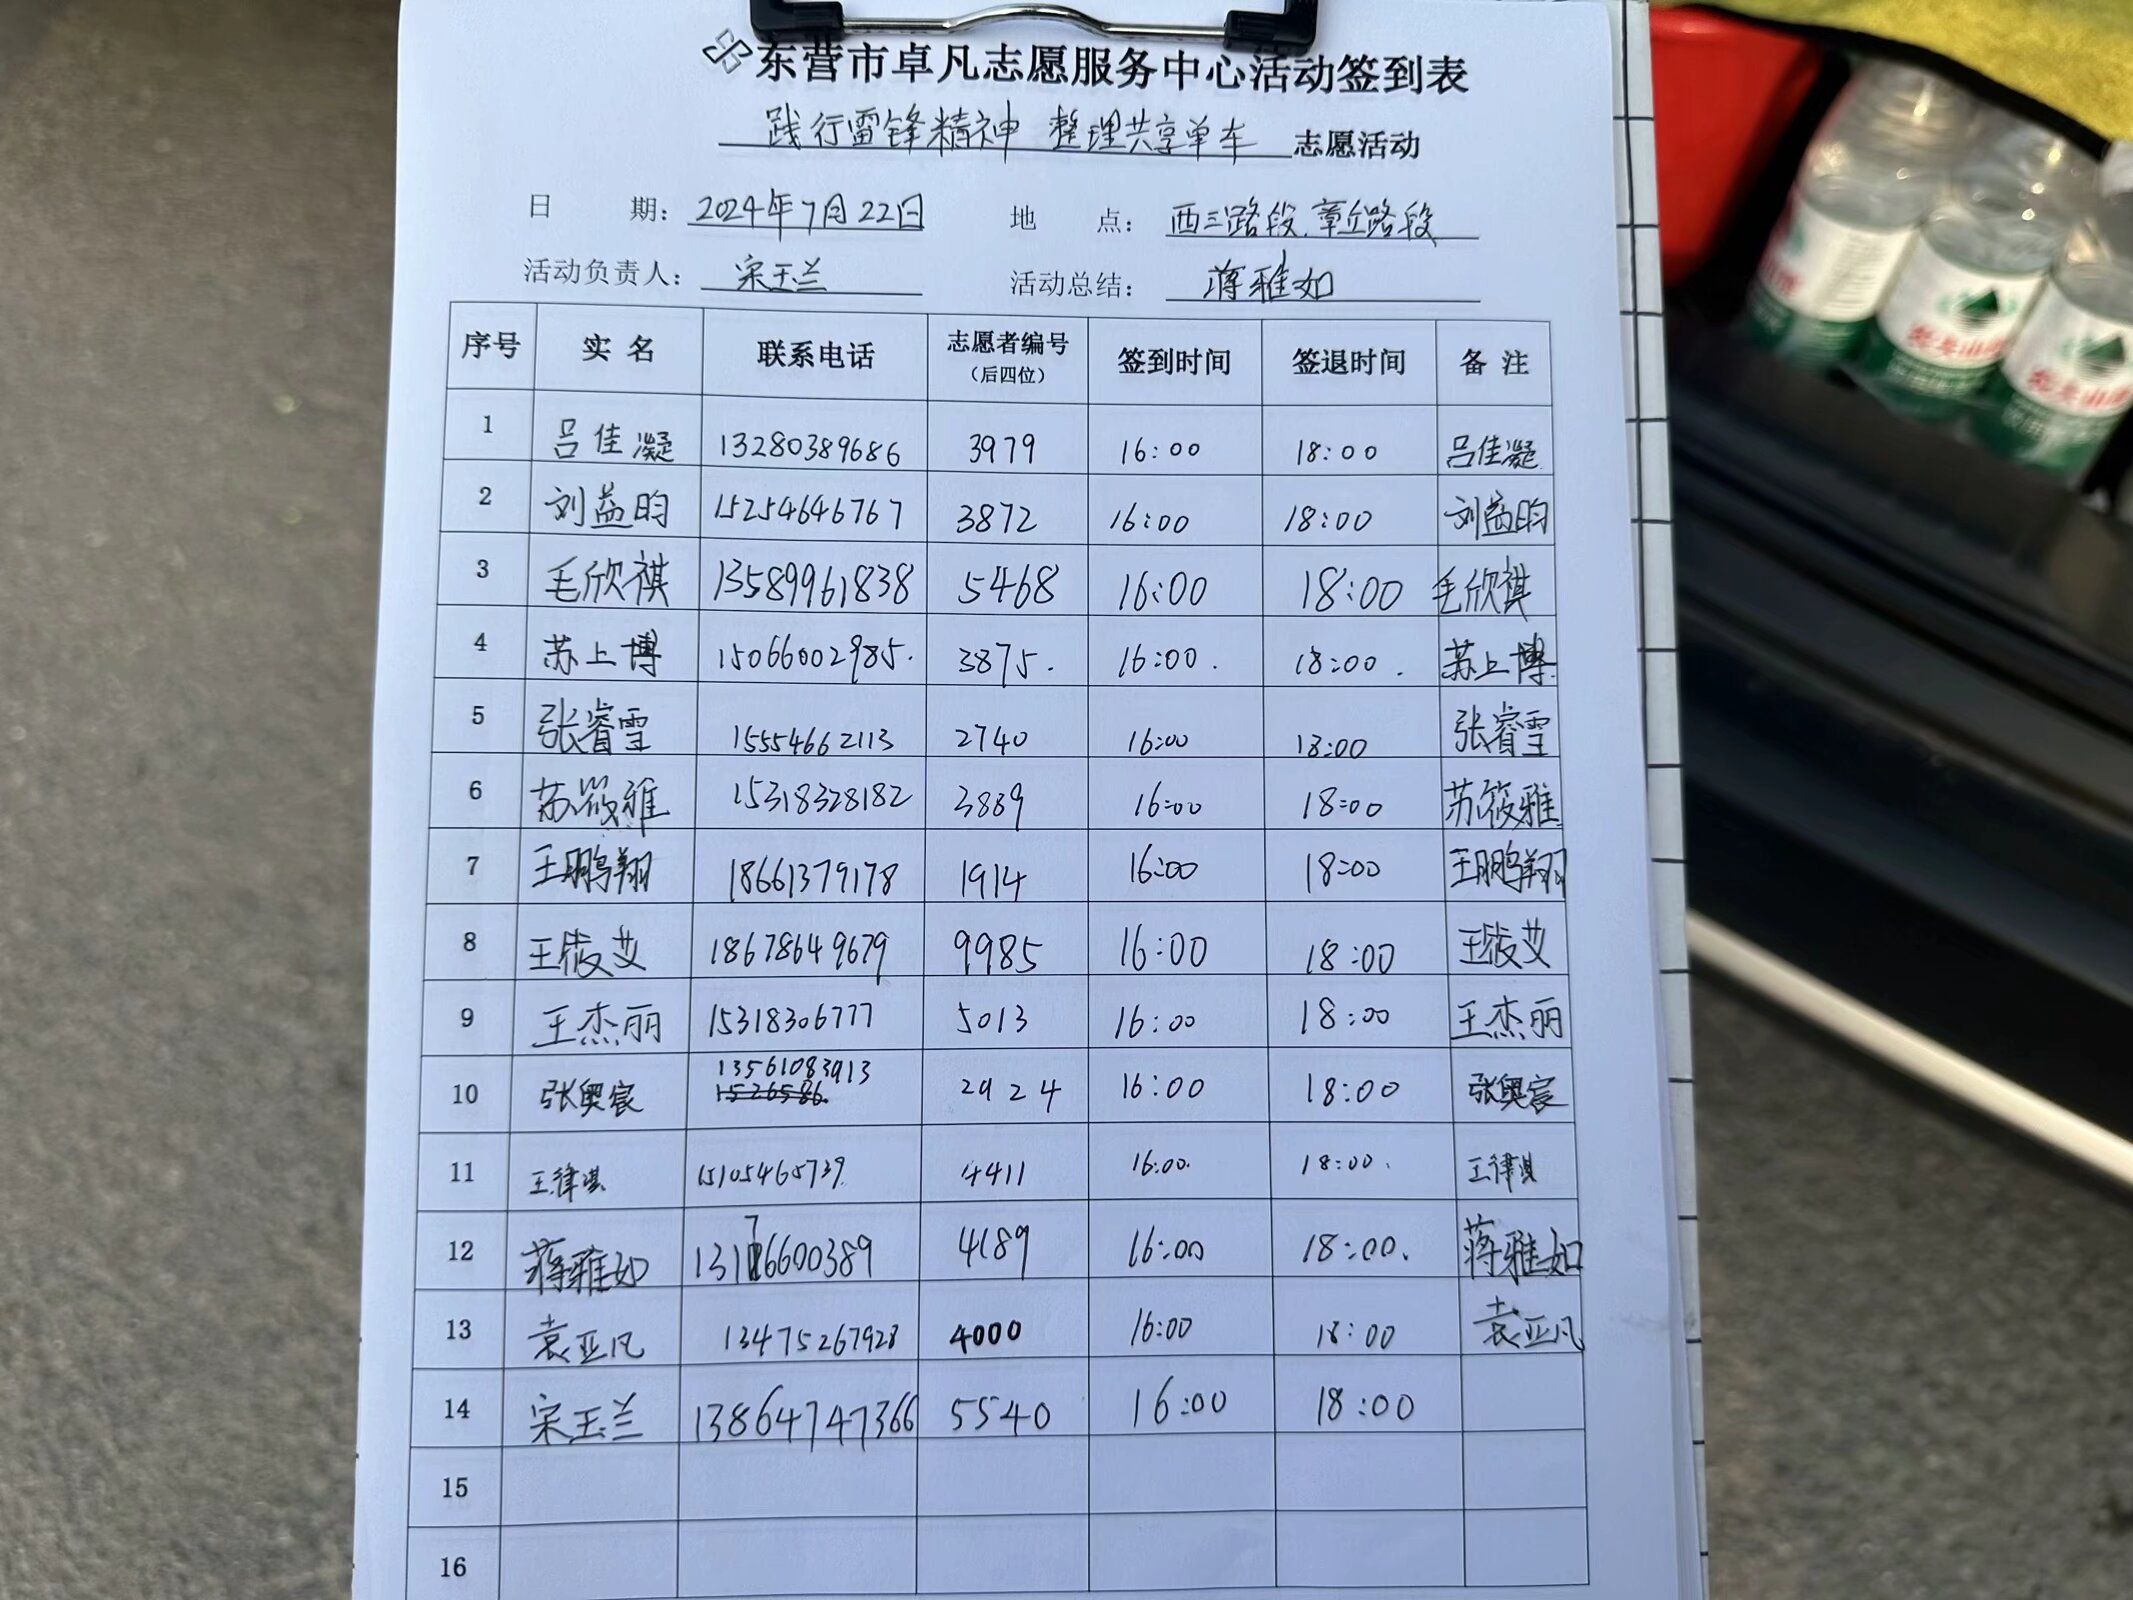 东营市卓凡志愿服务中心活动签到表
践行雷锋精神 整理共享单车 志愿活动
日 期： 2024年7月22日 地 点： 西三路段、章丘路段
活动负责人： 宋玉兰 活动总结： 蒋雅如
序号 实名 联系电话 志愿者编号 签到时间 签退时间 备注
（后四位）
1 吕佳凝 13280389686 3979 16:00 18:00 吕佳凝
2 刘益昀 15254646767 3872 16:00 18:00 刘益昀
3 毛欣祺 13589961838 5468 16:00 18:00 毛欣祺
4 苏上博 15066002985. 3875. 16:00. 18:00. 苏上博
5 张睿雪 15554662113 2740 16:00 18:00 张睿雪
6 苏筱雅 15318328182 3889 16:00 18:00 苏筱雅
7 王鹏翔 18661379178 1914 16:00 18:00 王鹏翔
8 王筱艾 18678649679 9985 16:00 18:00 王筱艾
9 王杰丽 15318306777 5013 16:00 18:00 王杰丽
10 张奥宸 13561083913 2924 16:00 18:00 张奥宸
1526586.
11 王律淇 15105465739. 4411 16:00. 18:00. 王律淇
12 蒋雅如 13176600389 4189 16:00 18:00. 蒋雅如
13 袁亚凡 13475267928 4000 16:00 18:00 袁亚凡
14 宋玉兰 13864747366 5540 16:00 18:00
15
16
农夫山泉
农夫山泉